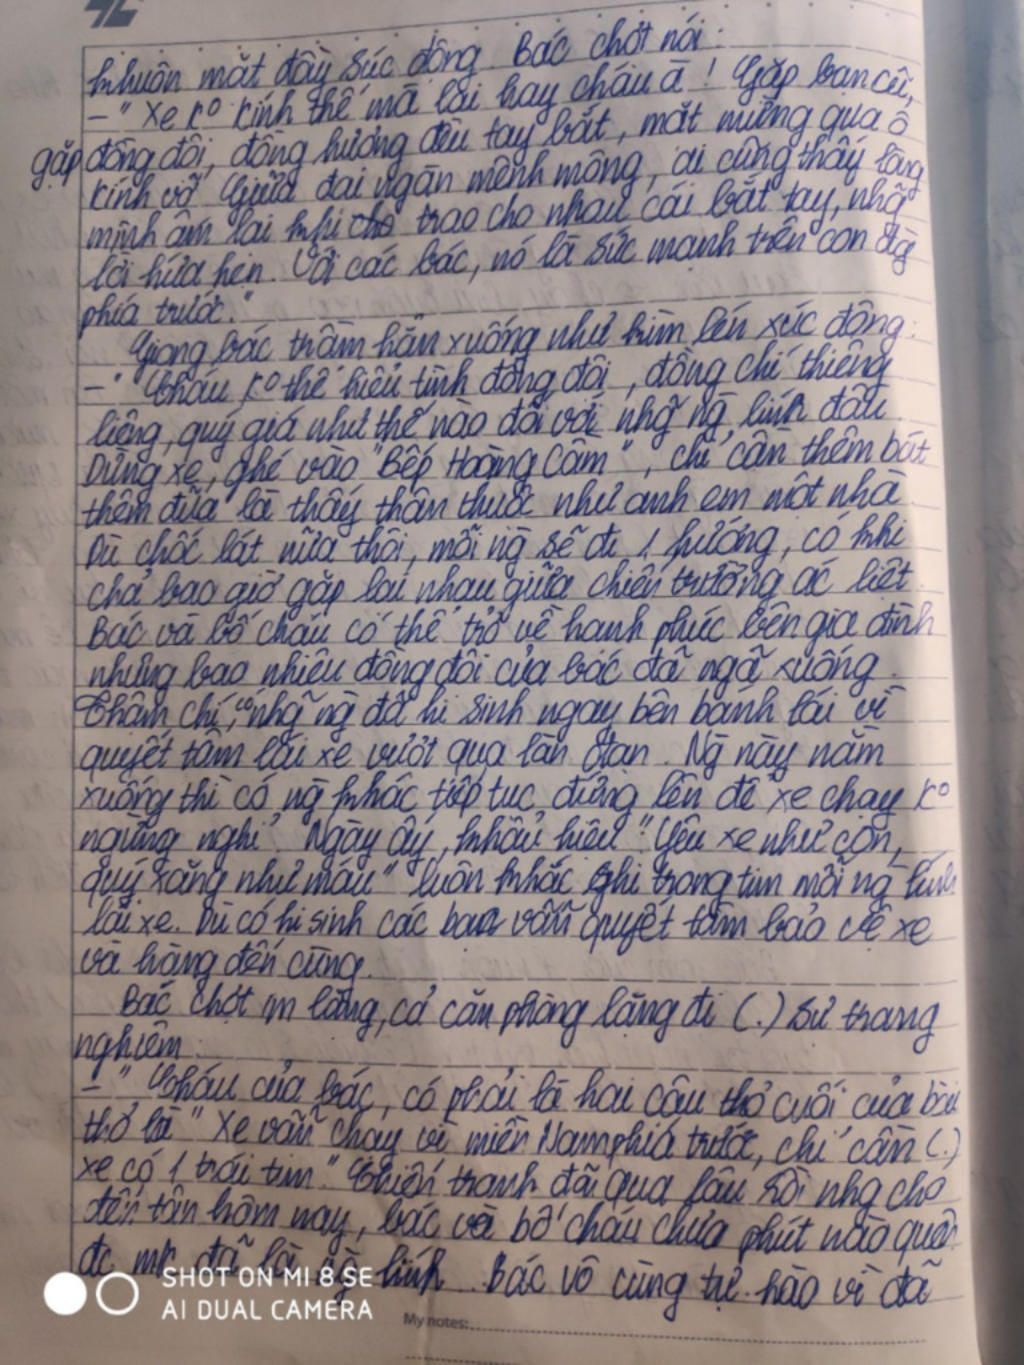 khuôn mặt đầy sức động. Bác chợt nói:
– " Xe ko kính thế mà lại hay cháu à ! Gặp bạn cũ,
gặp đồng đội, đồng hương đều tay bắt, mặt mừng qua ô
kính vỡ. Giữa đại ngàn mênh mông, ai cũng thấy lòng
mình ấm lại khi trao cho nhau cái bắt tay, nhg
lời hứa hẹn. Với các bác, nó là sức mạnh trên con đg
phía trước."
Giọng bác trầm hẳn xuống như kìm nén xúc động:
– " Cháu ko thể hiểu tình đồng đội, đồng chí thiêng
liêng, quý giá như thế nào đối với nhg ng lính đâu.
Dừng xe, ghé vào "Bếp Hoàng Cầm", chỉ cần thêm bát
thêm đũa là thấy thân thuộc như anh em một nhà.
Dù chốc lát nữa thôi, mỗi ng sẽ đi 1 hướng, có khi
chả bao giờ gặp lại nhau giữa chiến trường ác liệt.
Bác và bố cháu có thể trở về hạnh phúc bên gia đình
nhưng bao nhiêu đồng đội của bác đã ngã xuống.
Thậm chí, có nhg ng đã hi sinh ngay bên bánh lái vì
quyết tâm lái xe vượt qua làn đạn. Ng này nằm
xuống thì có ng khác tiếp tục đứng lên để xe chạy ko
ngừng nghỉ. Ngày ấy, khẩu hiệu "Yêu xe như con,
quý xăng như máu" luôn khắc ghi trong tim mỗi ng lính
lái xe. Dù có hi sinh các bác vẫn quyết tâm bảo vệ xe
và hàng đến cùng.
Bác chợt im lặng, cả căn phòng lặng đi (.) sự trang
nghiêm.
– " Cháu của bác, có phải là hai câu thơ cuối của bài
thơ là " Xe vẫn chạy vì miền Nam phía trước, chỉ cần (.)
xe có 1 trái tim". Chiến tranh đã qua lâu rồi nhg cho
đến tận hôm nay, bác và bố cháu chưa phút nào quên
đc mk đã là ng lính. Bác vô cùng tự hào vì đã
SHOT ON MI 8 SE
AI DUAL CAMERA
My notes: